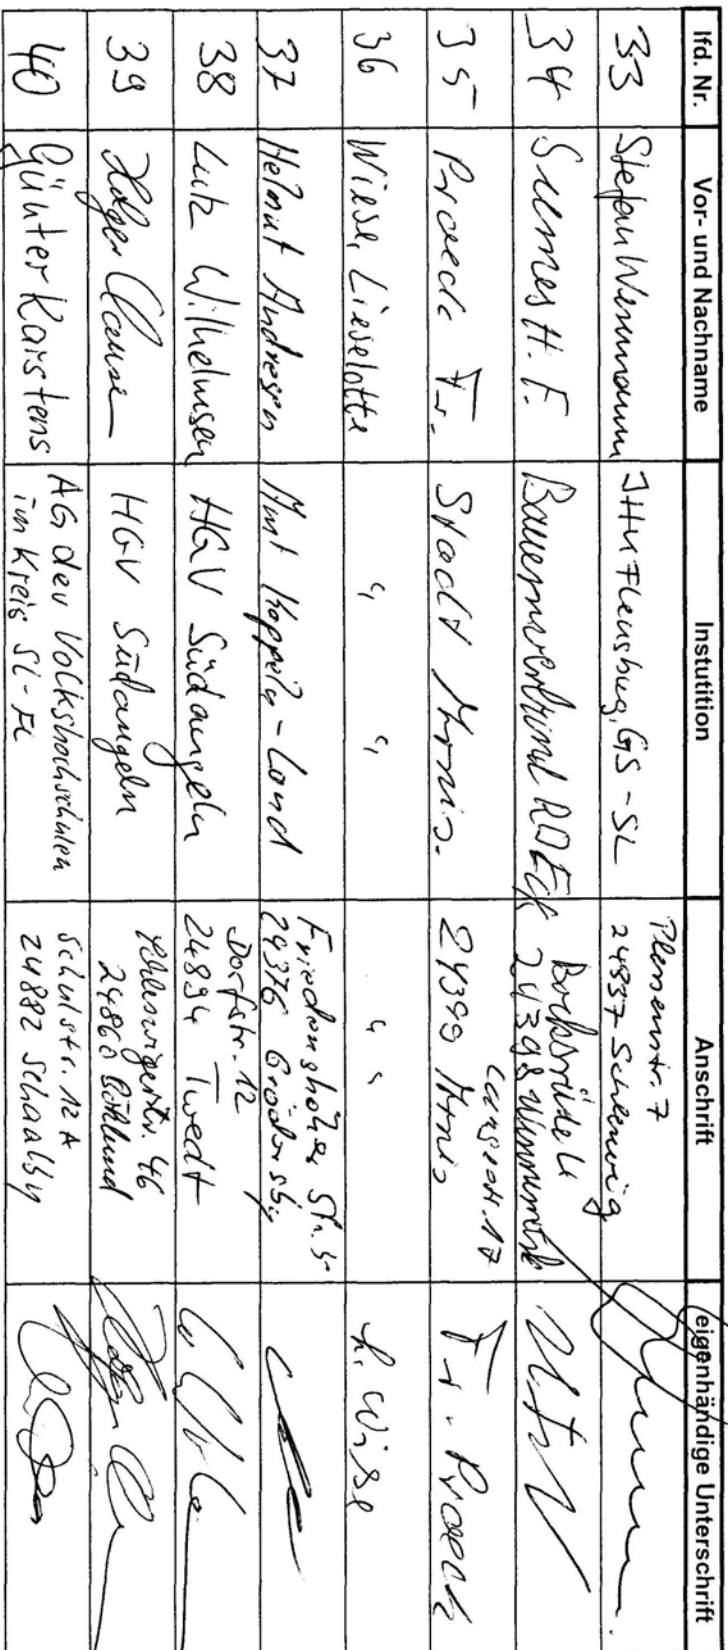 lfd. Nr. Vor- und Nachname Instutition Anschrift eigenhändige Unterschrift
33 Stefan IHK Flensburg, GS-SL Plessenstr. 7
24837 Schleswig
34 H. F. Bauernverband
24398 Winnemark
35 Praeck Fr. Stadt Arnis. Langestr. 17
24399 Arnis Fr. Praeck
36 Wiese, Lieselotte " " " " L. Wiese
37 Helmut Andresen Amt Kappeln-Land Friedenshöher Str. 5
24376 Grödersby
38 Lutz Wilhelmsen HGV Südangeln Dorfstr. 12
24894 Twedt
39 Holger Clausen HGV Südangeln Schleswigerstr. 46
24860 Böklund
40 Günter Karstens AG der Volkshochschulen
im Kreis SL-FL Schulstr. 12A
24882 Schaalby